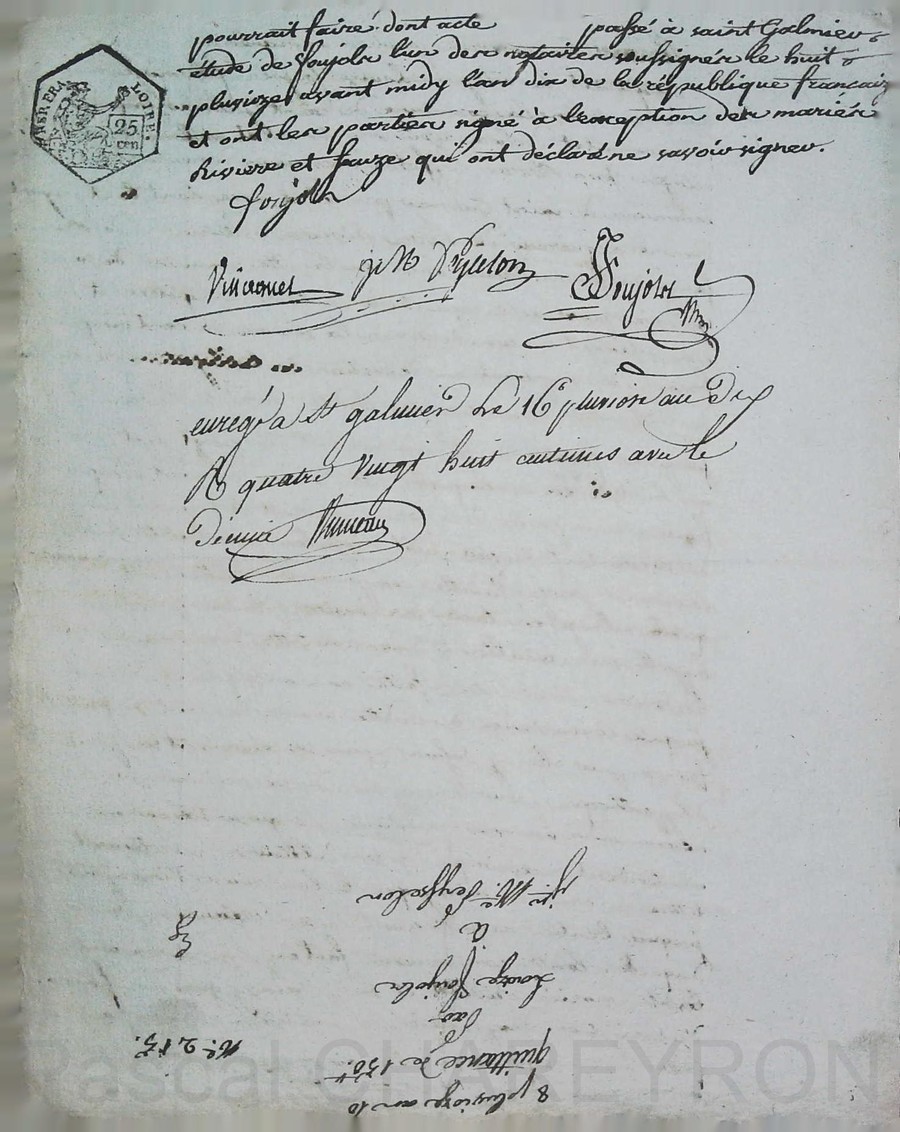 pourrait faire dont acte passé à saint Galmier
étude de Joujoln l'un des notaires soussignés le huit
plusioze avant midy l'an dix de la république français
et ont les parties signé à l'exception des mariés
Riviere et fauze qui ont déclaré ne savoir signer.
foujoln
INSP. ERA LOIRE
25
cen
jM Peyselon
enregé a St galmier Le 16 pluviose an Dix
R quatre vingt huit centimes avec le
Decime
8 plusioze an 10
quittance de 150.
par
Louise
à
jn. Me. Peysselon
N°. 213.
Pascal CHAREYRON